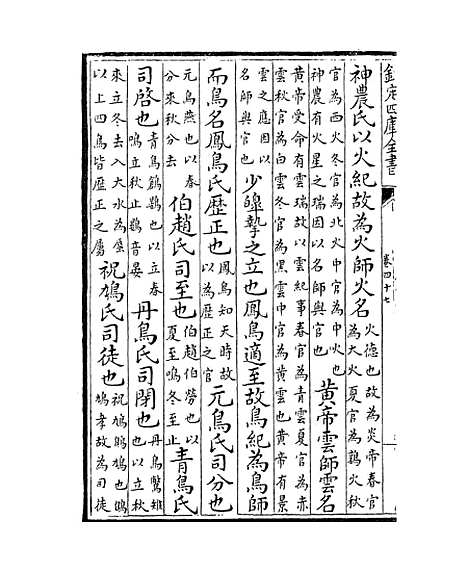 欽定四庫全書
卷四十七
神農氏以火紀故為火師火名火德也故為炎帝春官為大火夏官為鶉火秋
官為西火冬官為北火中官為中火也神農有火星之瑞因以名師與官也黃帝雲師雲名
黃帝受命有雲瑞故以雲紀事春官為青雲夏官為赤雲秋官為白雲冬官為黑雲中官為黃雲也黃帝有景
雲之應因以名師與官也少皥摯之立也鳳鳥適至故鳥紀為鳥師
而鳥名鳳鳥氏歴正也鳳鳥知天時故以為歴正之官元鳥氏司分也
元鳥燕也以春分來秋分去伯趙氏司至也伯趙伯勞也以夏至鳴冬至止青鳥氏
司啓也青鳥鶬鷃也以立春鳴立秋止鷃音晏丹鳥氏司閉也丹鳥驚雉也以立秋
來立冬去入大水為蜃以上四鳥皆歴正之屬祝鳩氏司徒也祝鳩鷦鳩也鷦鳩孝故為司徒